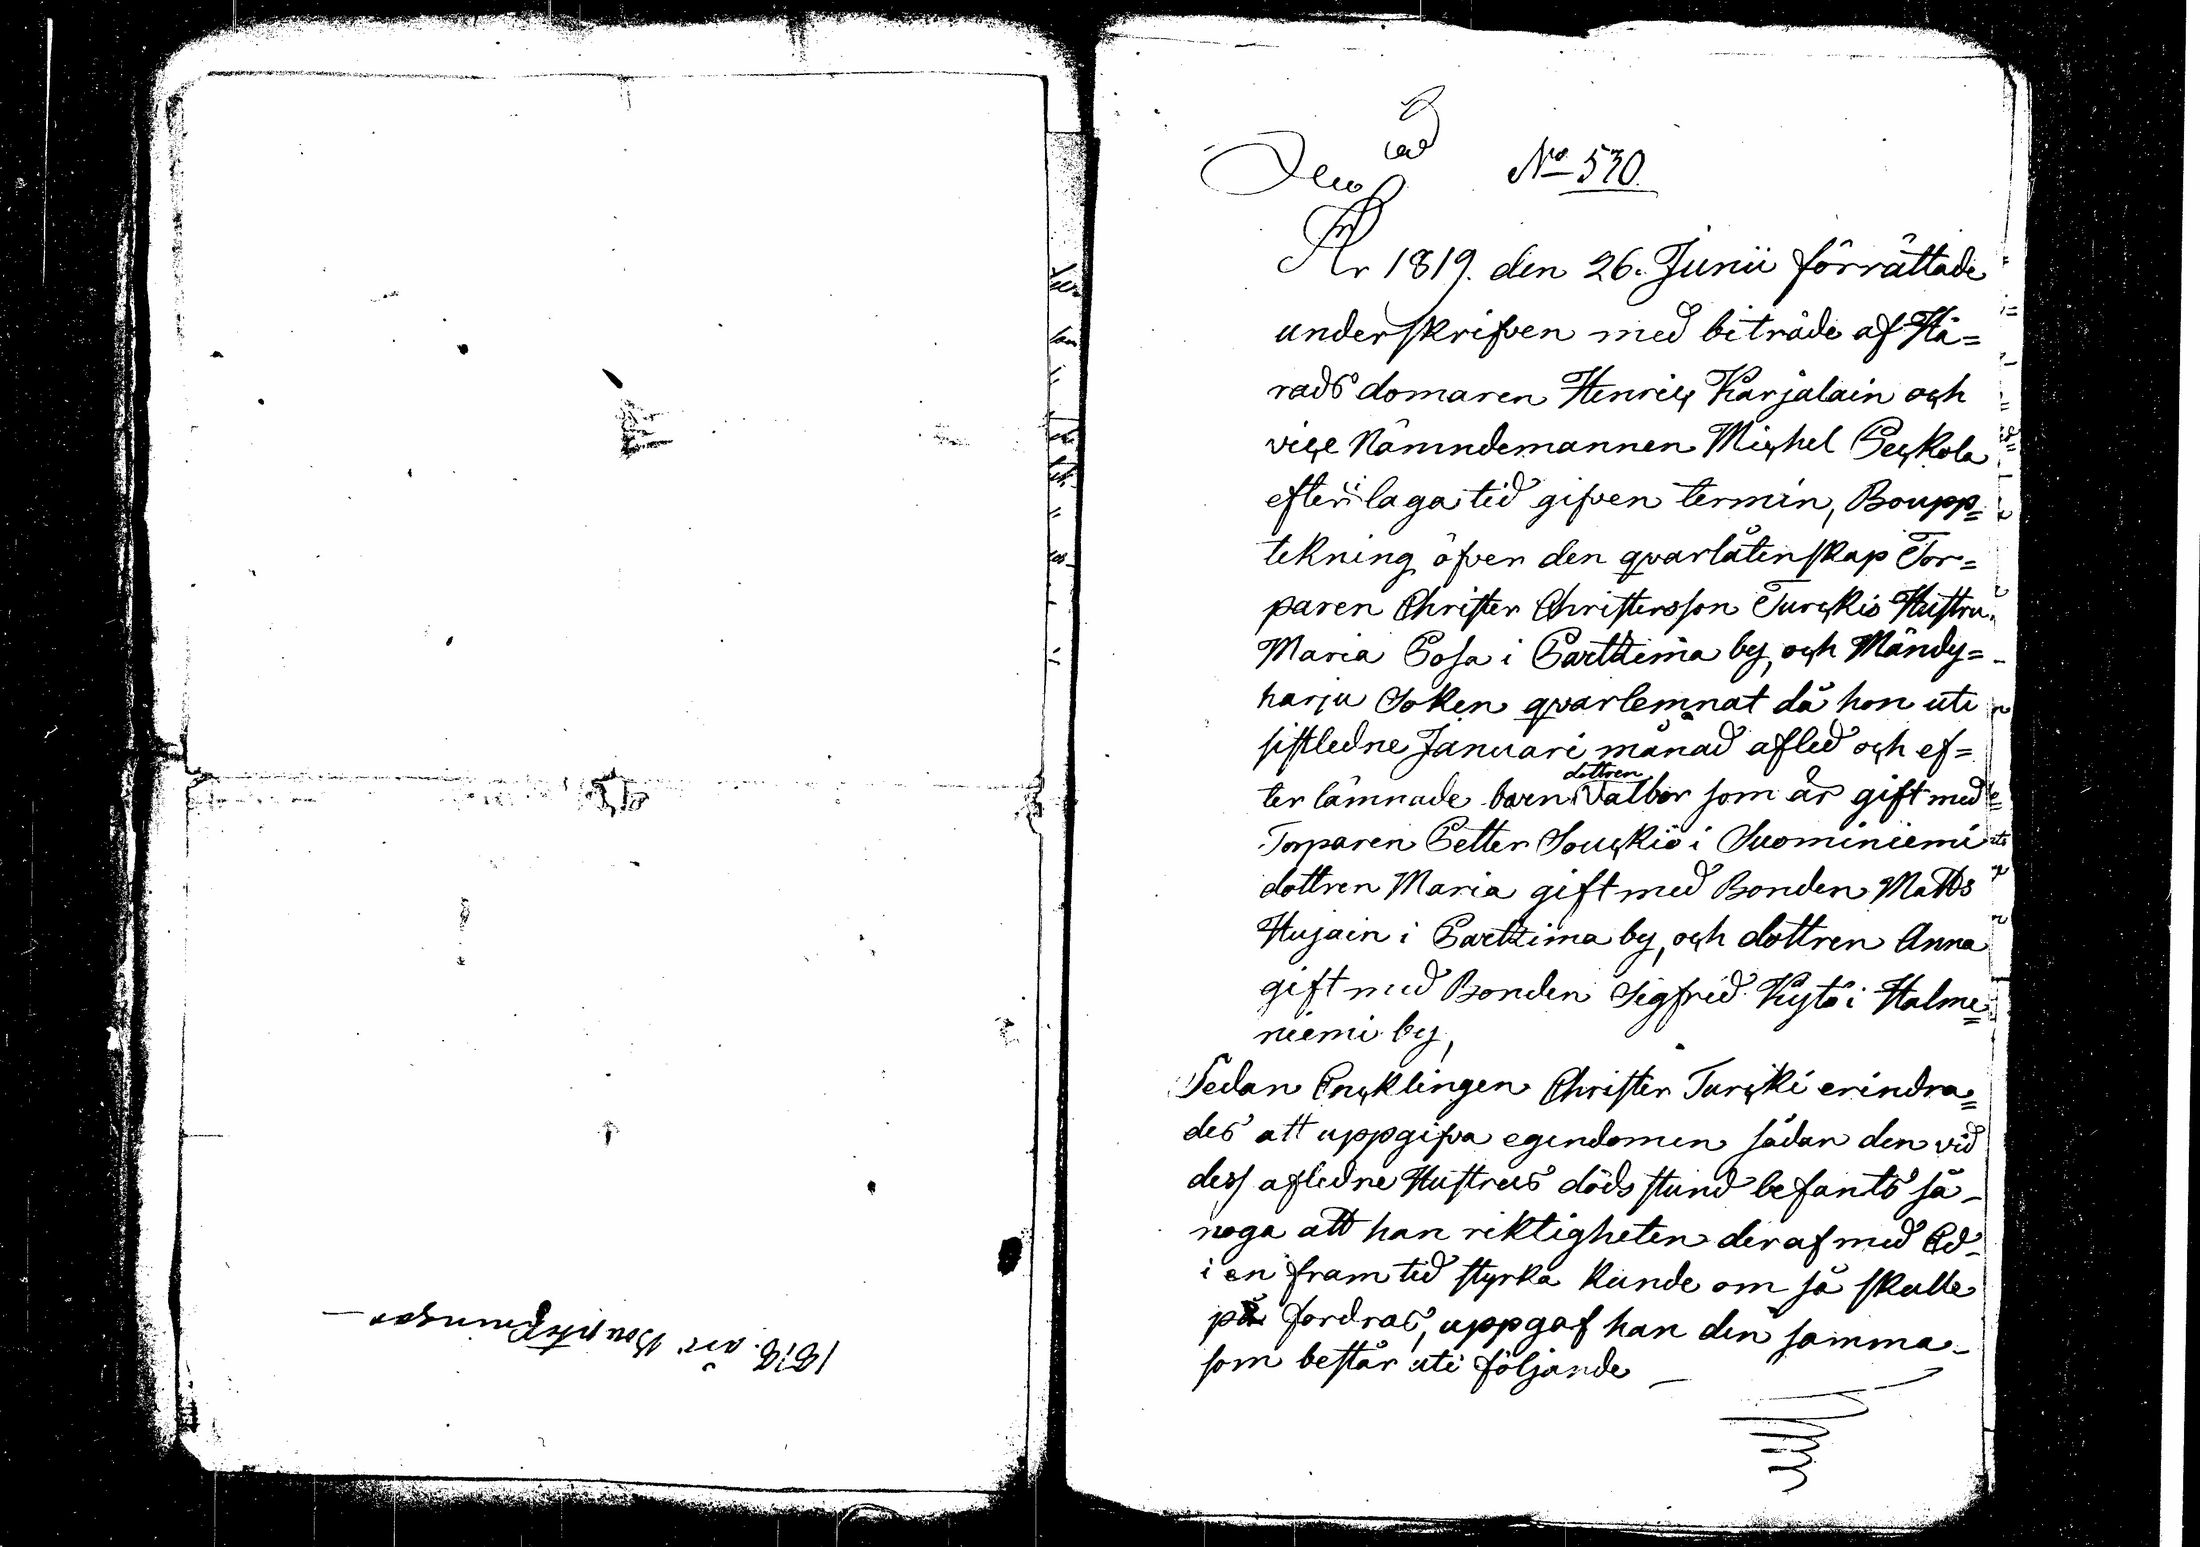 1818. års Bouptekningar
No 530.
År 1819. den 26. Junii förrättade
underskrifven med biträde af Hä=
radsdomaren Henric Karjalain och
vice Nämndemannen Michel Peckola
efter i laga tid gifven termin, Boupp=
tekning öfver den qvarlåtenskap Tor=
paren Christer Christersson Turckis Hustru
Maria Posa i Parttima by, och Mändy=
harju Soken qvarlemnat då hon uti
sistledne Januari månad afled och ef=
ter lämnade barn dottren Valbor som är gift med
Torparen Petter Souckio i Suominiemi
dottren Maria gift med Bonden Matts
Hujain i Parttima by, och dottren Anna
gift med Bonden Sigfrid Kytö i Halme=
niemi by,
Sedan Encklingen Christer Turcki erindra=
des att uppgifva egendomen sådan den vid
dess afledne Hustrus dödsstund befants så
noga att han riktigheten deraf med Ed
i en framtid styrka kunde om så skulle
på fordras, uppgaf han den samma
som består uti följande